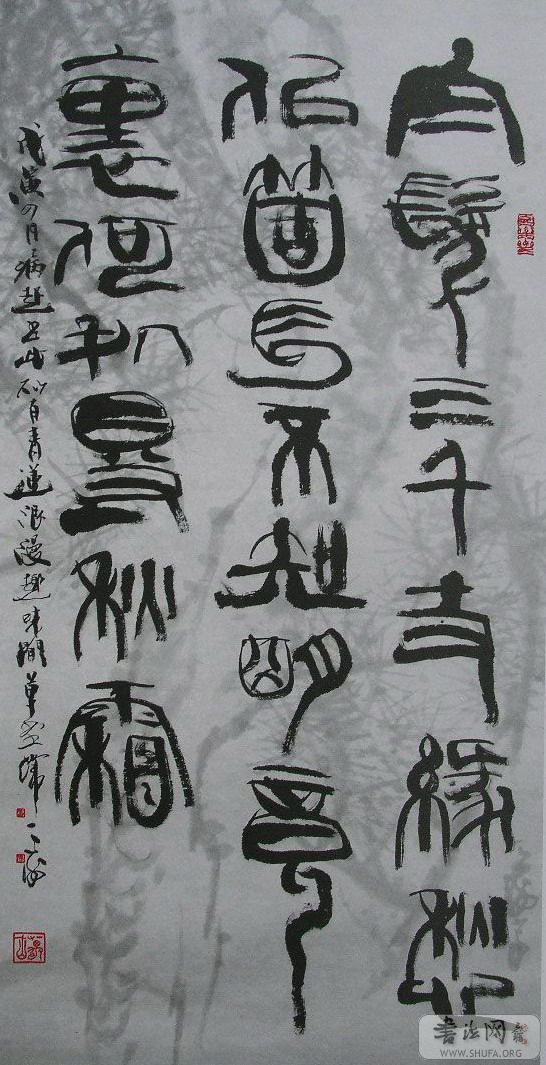 白髮三千丈緣愁
似箇長不知明竟
裏何処㝵秋霜
戊寅四月病起書此 青蓮浪漫趣味 草堂
書法网
WWW.SHUFA.ORG